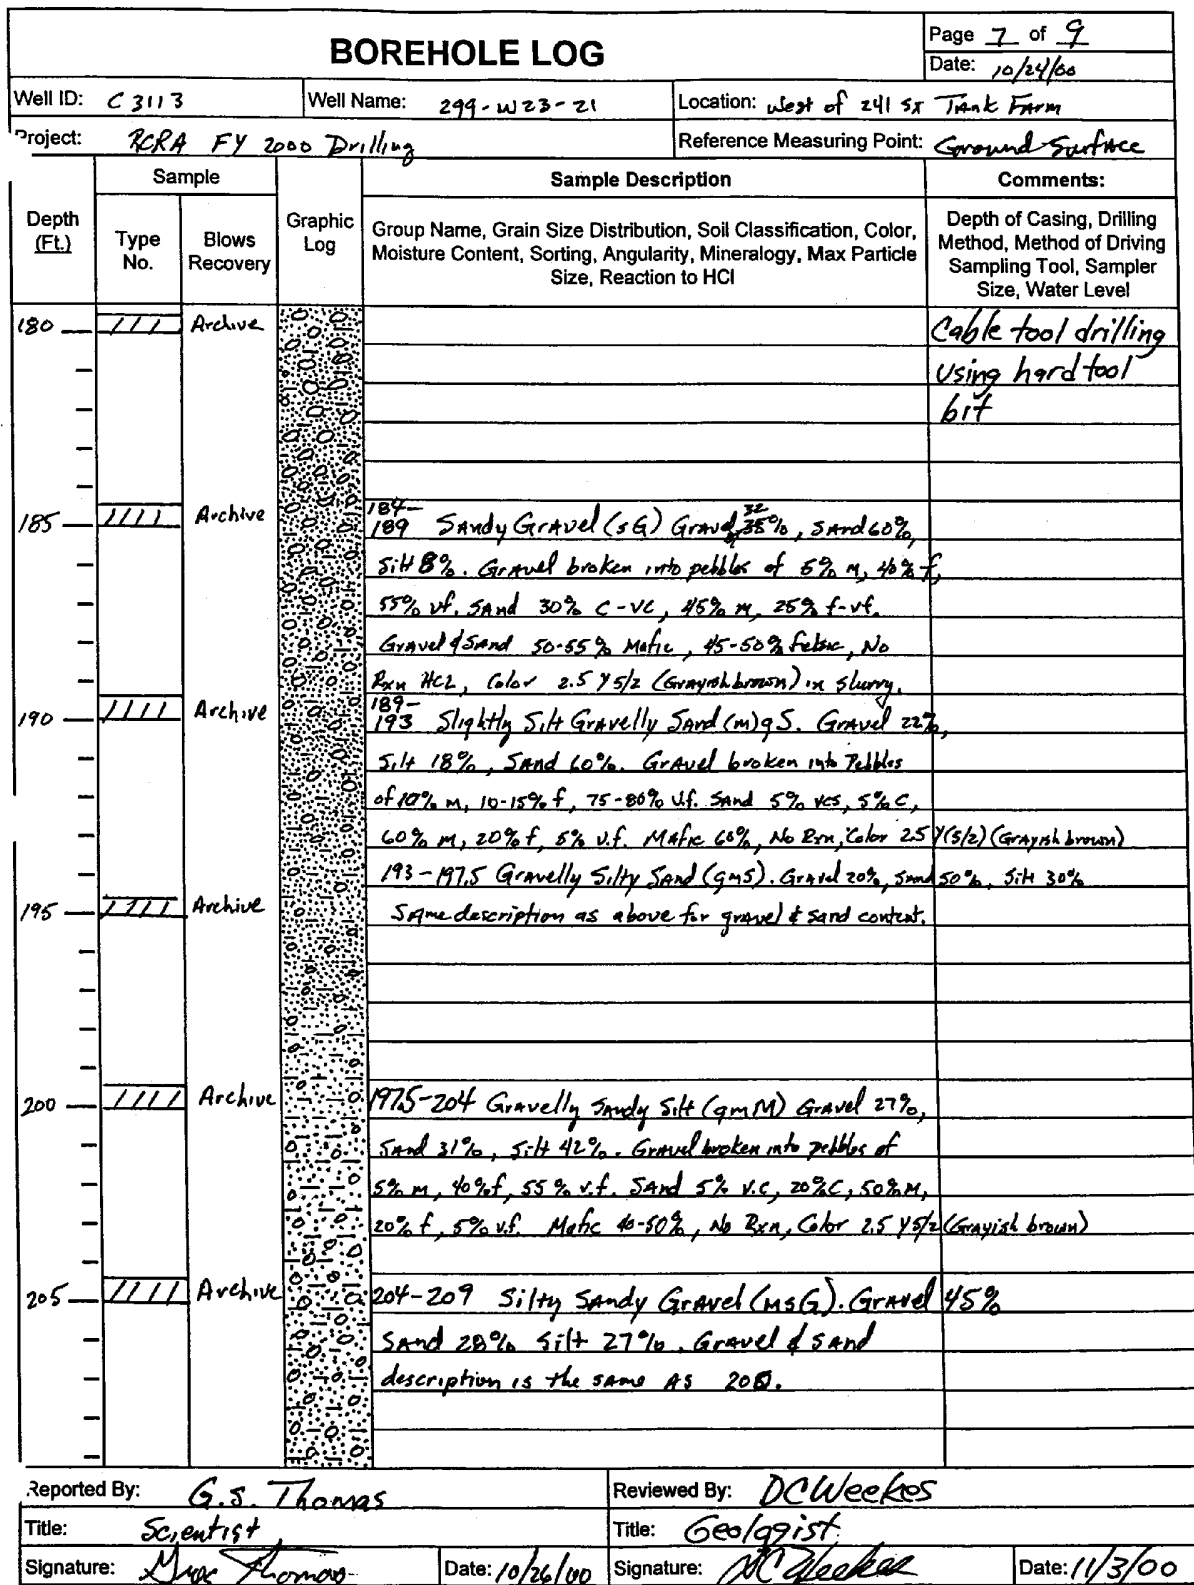 BOREHOLE LOG
Page 7 of 9
Date: 10/24/00
Well ID: C3113
Well Name: 299-W23-21
Location: West of 241 SX Tank Farm
Project: RCRA FY 2000 Drilling
Reference Measuring Point: Ground Surface
Depth (Ft.)
Sample
Type No.
Blows Recovery
Graphic Log
Sample Description
Group Name, Grain Size Distribution, Soil Classification, Color,
Moisture Content, Sorting, Angularity, Mineralogy, Max Particle
Size, Reaction to HCl
Comments:
Depth of Casing, Drilling
Method, Method of Driving
Sampling Tool, Sampler
Size, Water Level
180 Archive
Cable tool drilling
using hard tool
bit
185 Archive
184-
189 Sandy Gravel (sG) Gravel 32%, Sand 60%,
Silt 8%. Gravel broken into pebbles of 5% m, 40% f,
55% vf. Sand 30% c-vc, 45% m, 25% f-vf.
Gravel & Sand 50-55% Mafic, 45-50% felsic, No
Rxn HCL, Color 2.5 Y 5/2 (Grayish brown) in slurry.
190 Archive
189-
193 Slightly Silt Gravelly Sand (m)gS. Gravel 22%,
Silt 18%, Sand 60%. Gravel broken into Pebbles
of 10% m, 10-15% f, 75-80% v.f. Sand 5% vcs, 5% c,
60% m, 20% f, 5% v.f. Mafic 60%, No Rxn, Color 2.5 Y(5/2) (Grayish brown)
193-197.5 Gravelly Silty Sand (gms). Gravel 20%, Sand 50%, Silt 30%
195 Archive
Same description as above for gravel & sand content.
200 Archive
197.5-204 Gravelly Sandy Silt (gmM) Gravel 27%,
Sand 31%, Silt 42%. Gravel broken into pebbles of
5% m, 40% f, 55% v.f. Sand 5% v.c, 20% C, 50% M,
20% f, 5% v.f. Mafic 40-50%, No Rxn, Color 2.5 Y 5/2 (Grayish brown)
205 Archive
204-209 Silty Sandy Gravel (msG). Gravel 45%
Sand 28% Silt 27%. Gravel & Sand
description is the same as 200.
Reported By: G.S. Thomas
Reviewed By: DC Weekes
Title: Scientist
Title: Geologist
Signature: Thomas
Date: 10/26/00
Signature: DC Weekes
Date: 11/3/00